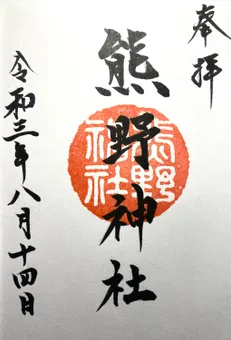 奉拝
熊野神社
熊野神社
令和三年八月十四日